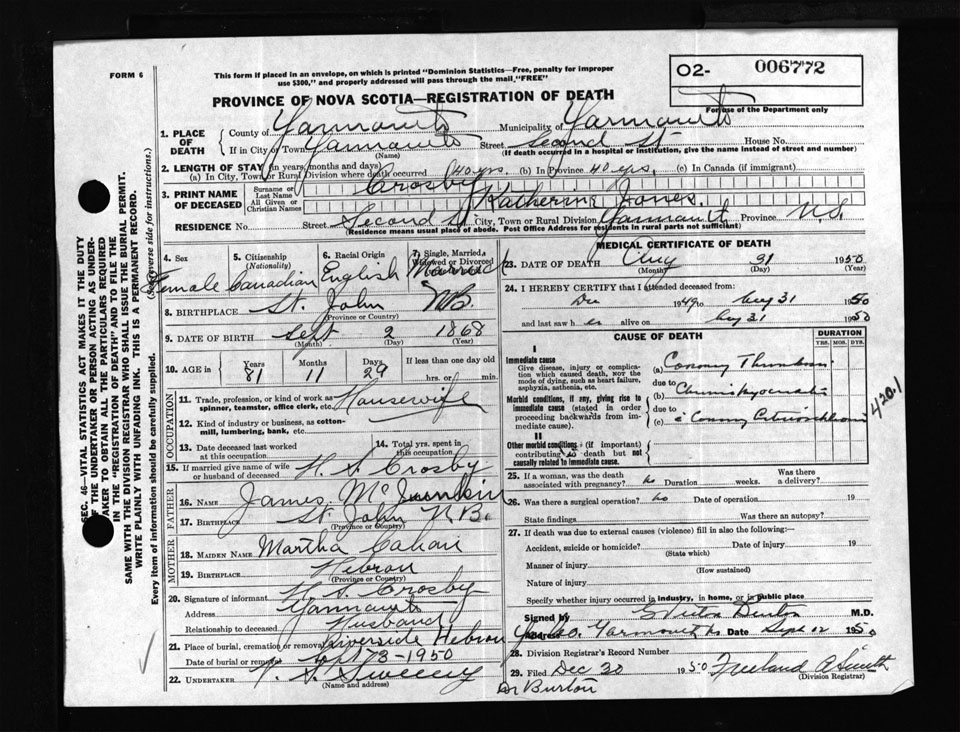 FORM 6
This form if placed in an envelope, on which is printed "Dominion Statistics—Free, penalty for improper
use $300," and properly addressed will pass through the mail "FREE"
O2- 006772
For use of the Department only
PROVINCE OF NOVA SCOTIA—REGISTRATION OF DEATH
1. PLACE OF DEATH
County of Yarmouth Municipality of Yarmouth
If in City or Town Yarmouth Street Second St House No.
(Name) (If death occurred in a hospital or institution, give the name instead of street and number)
2. LENGTH OF STAY (in years, months and days)
(a) In City, Town or Rural Division where death occurred 40 yrs. (b) In Province 40 yrs. (c) In Canada (if immigrant)
3. PRINT NAME OF DECEASED
Surname or Last Name Crosby
All Given or Christian Names Katherine Jones.
RESIDENCE No. Street Second St City, Town or Rural Division Yarmouth Province N.S.
(Residence means usual place of abode. Post Office Address for residents in rural parts not sufficient)
4. Sex Female
5. Citizenship (Nationality) Canadian
6. Racial Origin English
7. Single, Married, Widowed or Divorced Married
8. BIRTHPLACE St. John N.B.
(Province or Country)
9. DATE OF BIRTH Sept 2 1868
(Month) (Day) (Year)
10. AGE in Years 81 Months 11 Days 29 If less than one day old hrs. or min.
OCCUPATION
11. Trade, profession or kind of work as spinner, teamster, office clerk, etc. Housewife
12. Kind of industry or business, as cotton-mill, lumbering, bank, etc.
13. Date deceased last worked at this occupation
14. Total yrs. spent in this occupation.
15. If married give name of wife or husband of deceased H. S. Crosby
FATHER
16. NAME James McJunkin
17. BIRTHPLACE St. John N.B.
(Province or Country)
MOTHER
18. MAIDEN NAME Martha
19. BIRTHPLACE Hebron
(Province or Country)
20. Signature of informant H. S. Crosby
Address Yarmouth
Relationship to deceased Husband
21. Place of burial, cremation or removal Riverside Hebron
Date of burial or removal Sept 3-1950
22. UNDERTAKER V. S. Sweeny
(Name and address)
MEDICAL CERTIFICATE OF DEATH
23. DATE OF DEATH Aug 31 1950
(Month) (Day) (Year)
24. I HEREBY CERTIFY that I attended deceased from:
Dec 1949 to Aug 31 1950
and last saw her alive on Aug 31 1950
CAUSE OF DEATH
DURATION
YRS. MOS. DYS.
I
Immediate cause
Give disease, injury or complication which caused death, not the mode of dying, such as heart failure, asphyxia, asthenia, etc.
(a) Coronary Thrombosis
due to
Morbid conditions, if any, giving rise to immediate cause (stated in order proceeding backwards from immediate cause)
(b) Chronic Myocarditis
due to
(c) Coronary
420.1
II
Other morbid conditions (if important) contributing to death but not causally related to immediate cause.
25. If a woman, was the death associated with pregnancy? no Duration weeks. Was there a delivery?
26. Was there a surgical operation? no Date of operation 19
State findings Was there an autopsy?
27. If death was due to external causes (violence) fill in also the following:—
Accident, suicide or homicide? Date of injury 19
(State which)
Manner of injury
(How sustained)
Nature of injury
Specify whether injury occurred in industry, in home, or in public place
Signed by G Victor Burton M.D.
Address Yarmouth Date Sept 12 1950
28. Division Registrar's Record Number
29. Filed Dec 30 1950 Freeland A Smith
(Division Registrar)
Dr Burton
SEC. 46—VITAL STATISTICS ACT MAKES IT THE DUTY
OF THE UNDERTAKER OR PERSON ACTING AS UNDERTAKER TO OBTAIN ALL THE PARTICULARS REQUIRED
IN THE "REGISTRATION OF DEATH" AND TO FILE THE
SAME WITH THE DIVISION REGISTRAR WHO SHALL ISSUE THE BURIAL PERMIT.
WRITE PLAINLY WITH UNFADING INK. THIS IS A PERMANENT RECORD.
Every item of information should be carefully supplied. (See reverse side for instructions.)